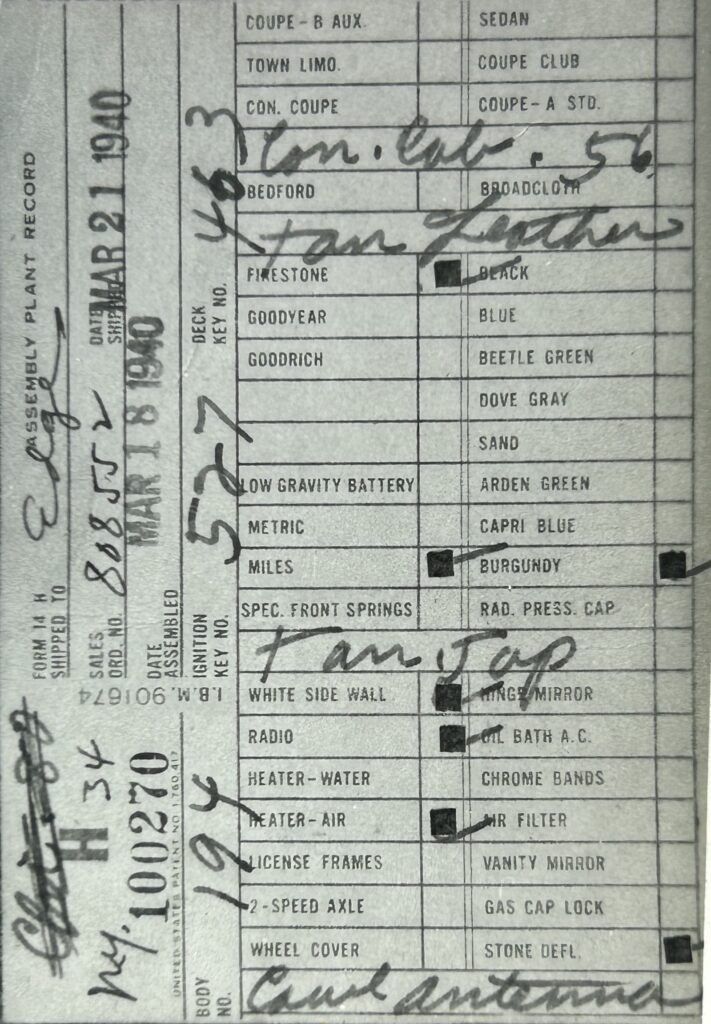 COUPE - B AUX. SEDAN
TOWN LIMO. COUPE CLUB
CON. COUPE COUPE - A STD.
Con. Cab. 56
BEDFORD BROADCLOTH
tan Leather
FIRESTONE BLACK
GOODYEAR BLUE
GOODRICH BEETLE GREEN
DOVE GRAY
SAND
LOW GRAVITY BATTERY ARDEN GREEN
METRIC CAPRI BLUE
MILES BURGUNDY
SPEC. FRONT SPRINGS RAD. PRESS. CAP
tan Top
WHITE SIDE WALL HINGE MIRROR
RADIO OIL BATH A.C.
HEATER-WATER CHROME BANDS
HEATER-AIR AIR FILTER
LICENSE FRAMES VANITY MIRROR
2-SPEED AXLE GAS CAP LOCK
WHEEL COVER STONE DEFL.
Cowl antenna
FORM 14 H ASSEMBLY PLANT RECORD
SHIPPED TO Edge
SALES ORD. NO. 808552 DATE SHIPPED MAR 21 1940
DATE ASSEMBLED MAR 18 1940
BODY NO. 194 IGNITION KEY NO. 527 DECK KEY NO. 463
I.B.M. 901674
H 34
ny. 100270
UNITED STATES PATENT NO 1,780,417